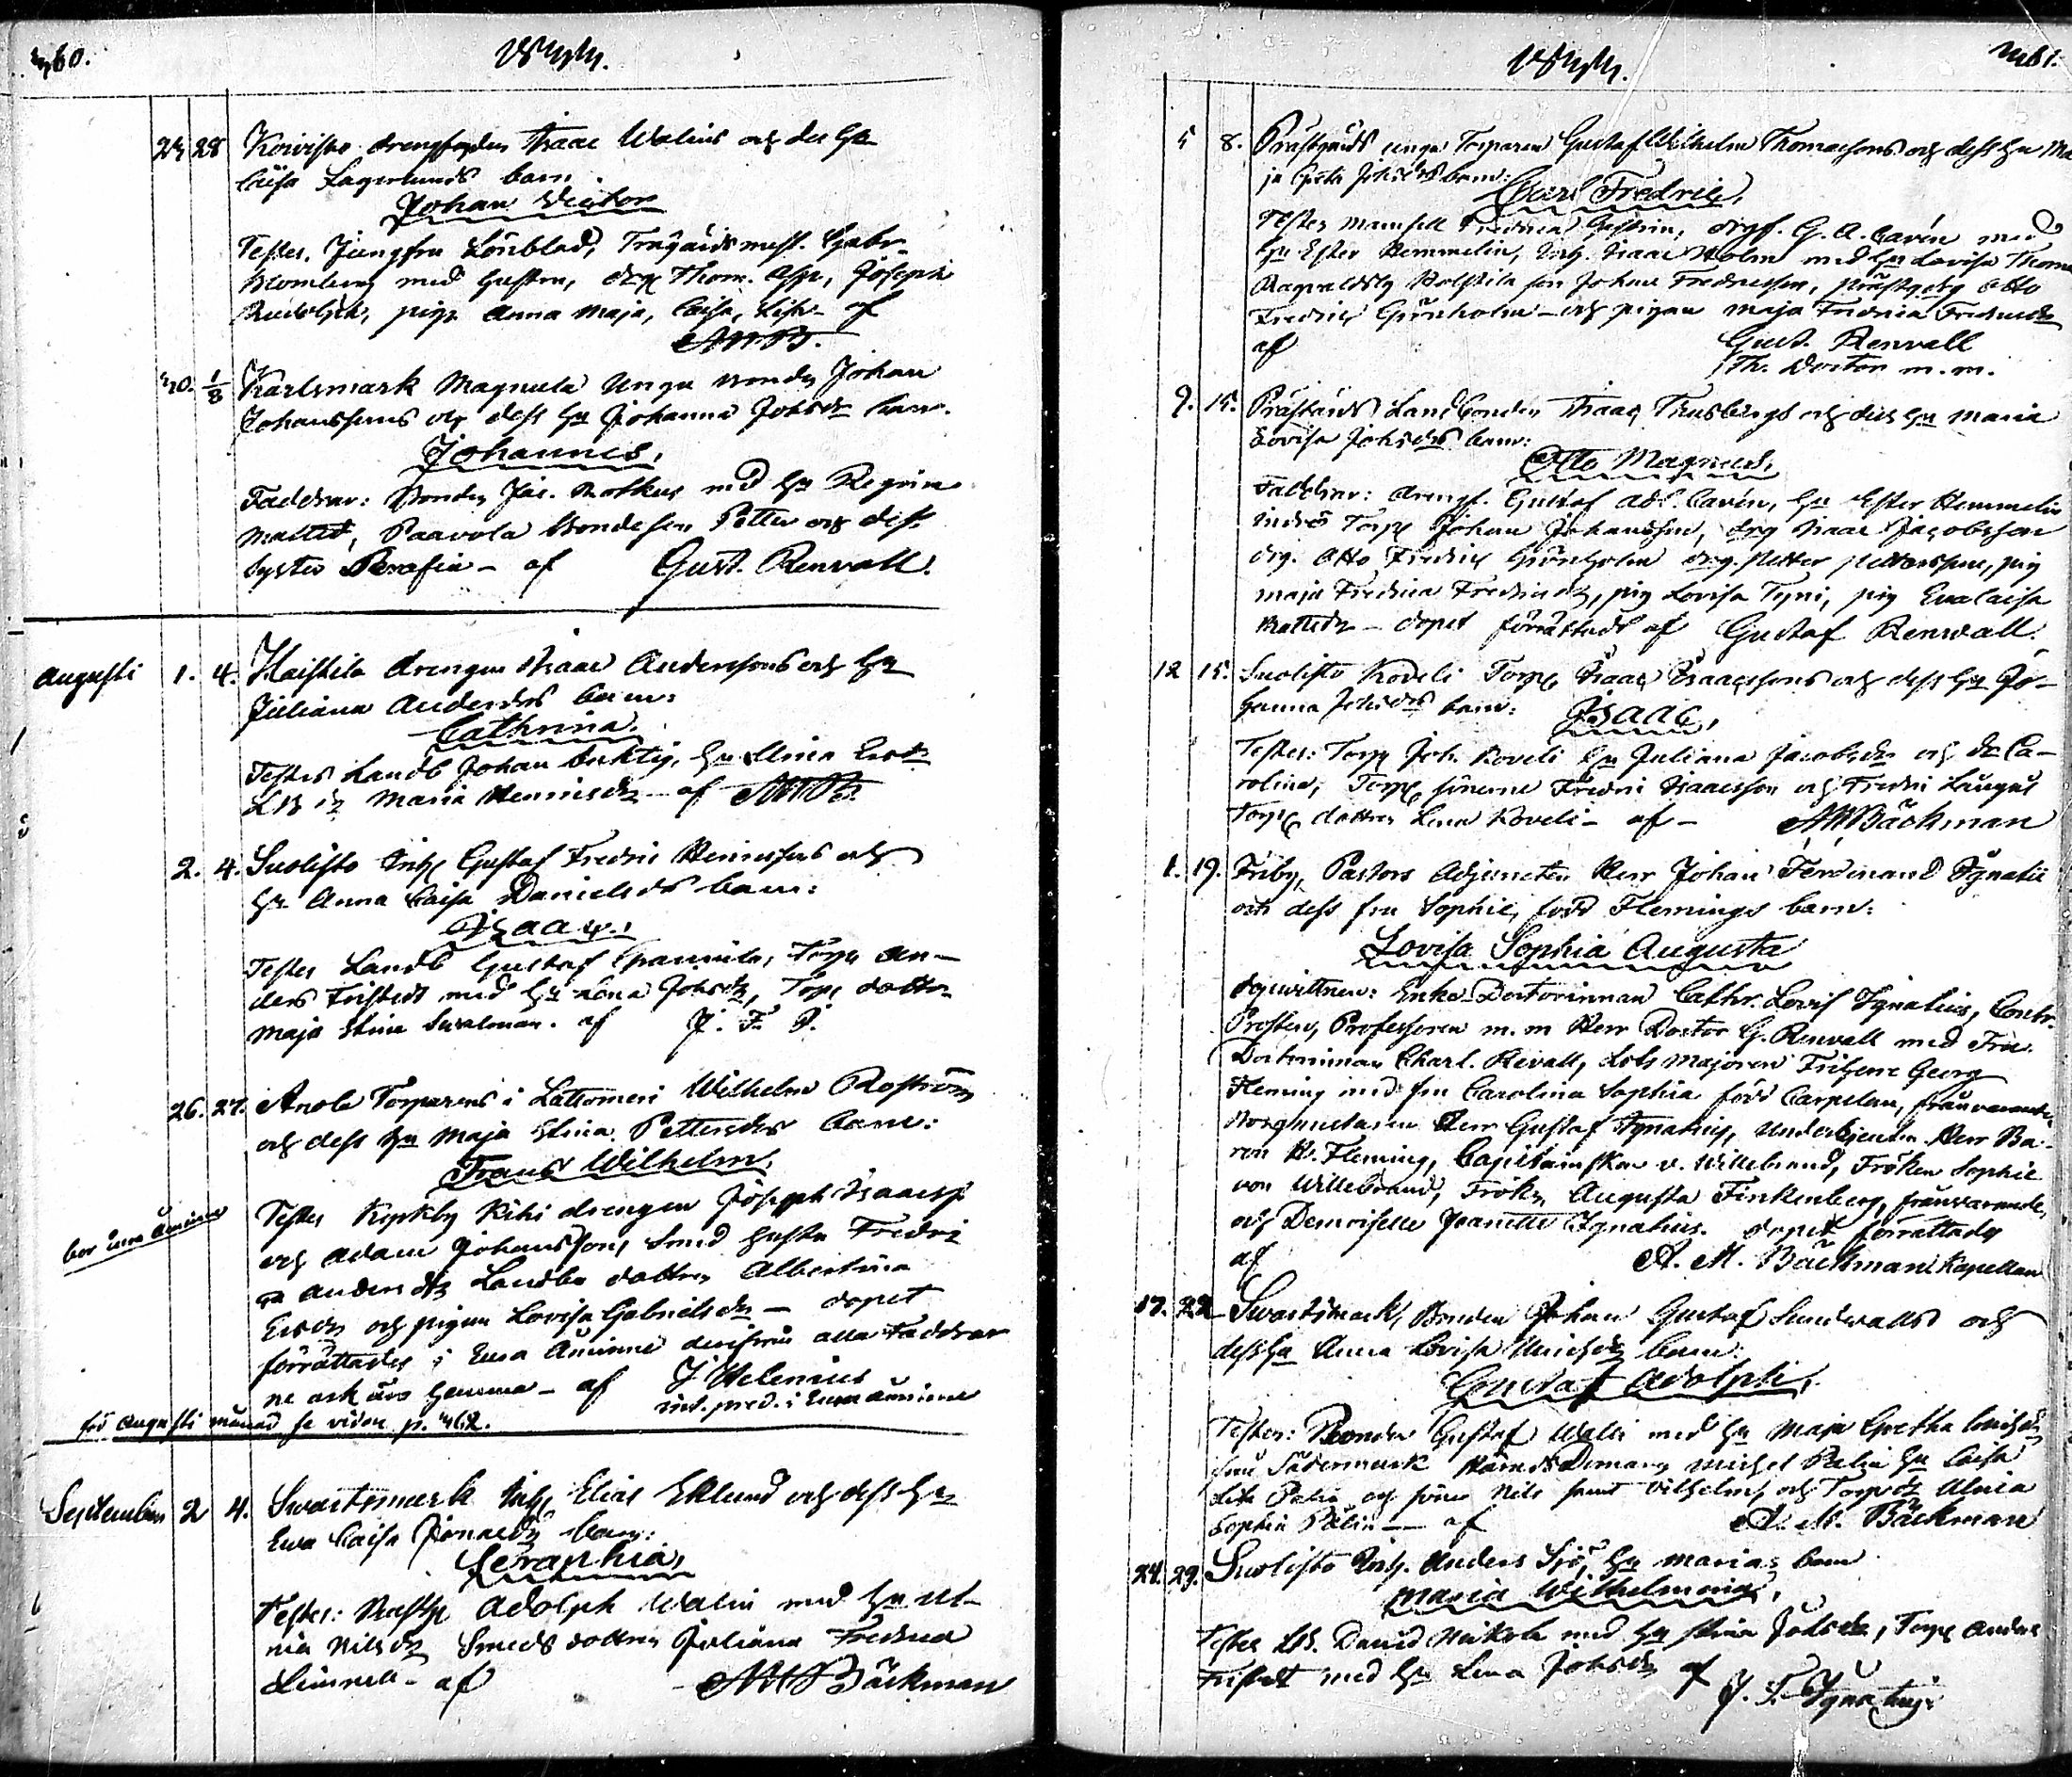 360.
1844.
24 28 Koivisto drengfogden Isaac Walins och des Hu
Caisa Lagerlunds barn
Johan Victor
Testes, Jungfru Lönblad, Trägårdsmäst. Gabr.
Blomberg med hustru, drg Thom. Joseph
Rudolph, pig Anna Maja, Caisa, Lisa - af
AMB.
30. 1/8 Karlsmark Magnula unga Bonden Johan
Johanssons och dess Hu Johanna Johsdr barn.
Johannes,
Faddrar: Bonden Jac. Rotkus med Hu Regina
Mattsd, Paavola Bondeson Petter och dess
syster Serafia - af Gust. Renvall.
Augusti 1. 4. Haistila drengen Isaac Anderssons och Hu
Juliana Andersdrs barn:
Cathrina.
Testes Landb Johan Hu Ulrica Ersdr
LB dr Maria Henricsdr - af AMB.
2. 4. Suolisto Inh Gustaf Fredric Henricsons och
Hu Anna Caisa Danielsdrs barn:
Isaac,
Testes Landb Gustaf Torp An-
ders Fristedt med Hu Lena Johsdr, Torp dottr.
Maja Stina af J. F. I.
26. 27. Anola Torparens i Lattomeri Wilhelm Roström
och dess Hu Maja Stina Pettersdrs barn:
Frans Wilhelm,
bor Eura Åminne
Testes Kyrkby Kihi drengen Joseph Isaacss
och Adam Johansson, Smed hustr Fredri
ca Andersdtr Landbo dottren Albertina
Ersdr och pigan Lovisa Gabrielsdr - dopet
förrättades i Eura Åminne derifrån alla Faddrar
ne ock äro hemma - af J Helenius
pred. i Euraåminne
för Augusti månad se vidare p. 362.
September 2 4. Svartsmark Inh Elias Eklund och dess Hu
Eva Caisa barn:
Seraphia,
Testes: Adolph Walin med Hu Ul-
rica Nilsdr Smeds dottren Juliana Fredrica
- af AMBäckman
1844.
361.
5 8. Prästgårds unga Torparen Gustaf Wilhelm Thomassons och dess Hu Ma
ja Greta Johsdrs barn:
Carl Fredric,
Testes Mamsell Fredrica drgf. G. A. Cavén med
Hu Ester Hemmelin, Inh. Isaac Holm med Hu Lovisa Thoms
Ragvaldsby Holstila son Johan Fredricsson, prästg drg Otto
Fredric Grönholm - och pigan Maja Fredrica Fredricsdr
af Gust. Renvall
Th. Doctor m.m.
9. 15. Prästgårds Landbonden Isaac Thusbergs och dess Hu Maria
Lovisa Johsdrs barn:
Otto Magnus,
Faddrar: drengf. Gustaf Adl. Cavén, Hu Ester Hemmelin
Torp Johan Johansson, drg Isaac Jacobsson
drg. Otto Fredric Grönholm drg. Petter Pettersson, pig
Maja Fredrica Fredricsdr, pig Lovisa Tyni, pig Eva Caisa
Mattsdr - dopet förrättadt af Gustaf Renvall.
12 15. Suolisto Koveli Torp Isaac Isaacssons och dess Hu Jo-
hanna Johsdrs barn: Isaac,
Testes: Torp Joh. Koveli Hu Juliana Jacobsdr och dr Ca-
rolina, Torp sönerne Fredric Isaacsson och Fredric
Torp dottren Lena Koveli - af - AMBäckman
1. 19. Friby, Pastors Adjuncten Herr Johan Ferdinand Ignatii
och dess fru Sophie, född Flemings barn:
Lovisa Sophia Augusta
dopvittnen: Enke-Doctorinnan Cathr. Lovis Ignatius, Contr.
Prosten, Professoren m.m Herr Doctor G. Renvall med Fru
Doctorinnan Charl. Revall, Lots Majoren Friherre Georg
Fleming med fru Carolina Sophia född Carpelan, frånvarande
Herr Gustaf Ignatius, Herr Ba-
ron H. Fleming, Capitainskan v. Willebrand, Fröken Sophie
von Willebrand, Fröken Augusta Finkenberg, frånvarande,
och Demoiselle Jeanette Ignatius. dopet förrättades
af A. M. Bäckman Kapellan
17. 22 Svartsmark, Bonden Johan Gustaf Sundvalls och
dess Hu Anna Lovisa Michsdr barn:
Gustaf Adolph,
Testes: Bonden Gustaf Walli med Hu Maja Gretha Michsdr
Södermark Häradsdomaren Michel Palin Hu Caisa
Lisa Palin och söner Nils samt Vilhelm, och Torp dr Ulrica
Sophia Palin - af A. M. Bäckman
24. 29. Suolisto Inh. Anders Sjö, Hu Marias barn
Maria Wilhelmina,
Testes LB. David Heikola med Hu Stina Johsdr, Torp Anders
Fristedt med Hu Lena Johsdr af
J. F. Ignatius